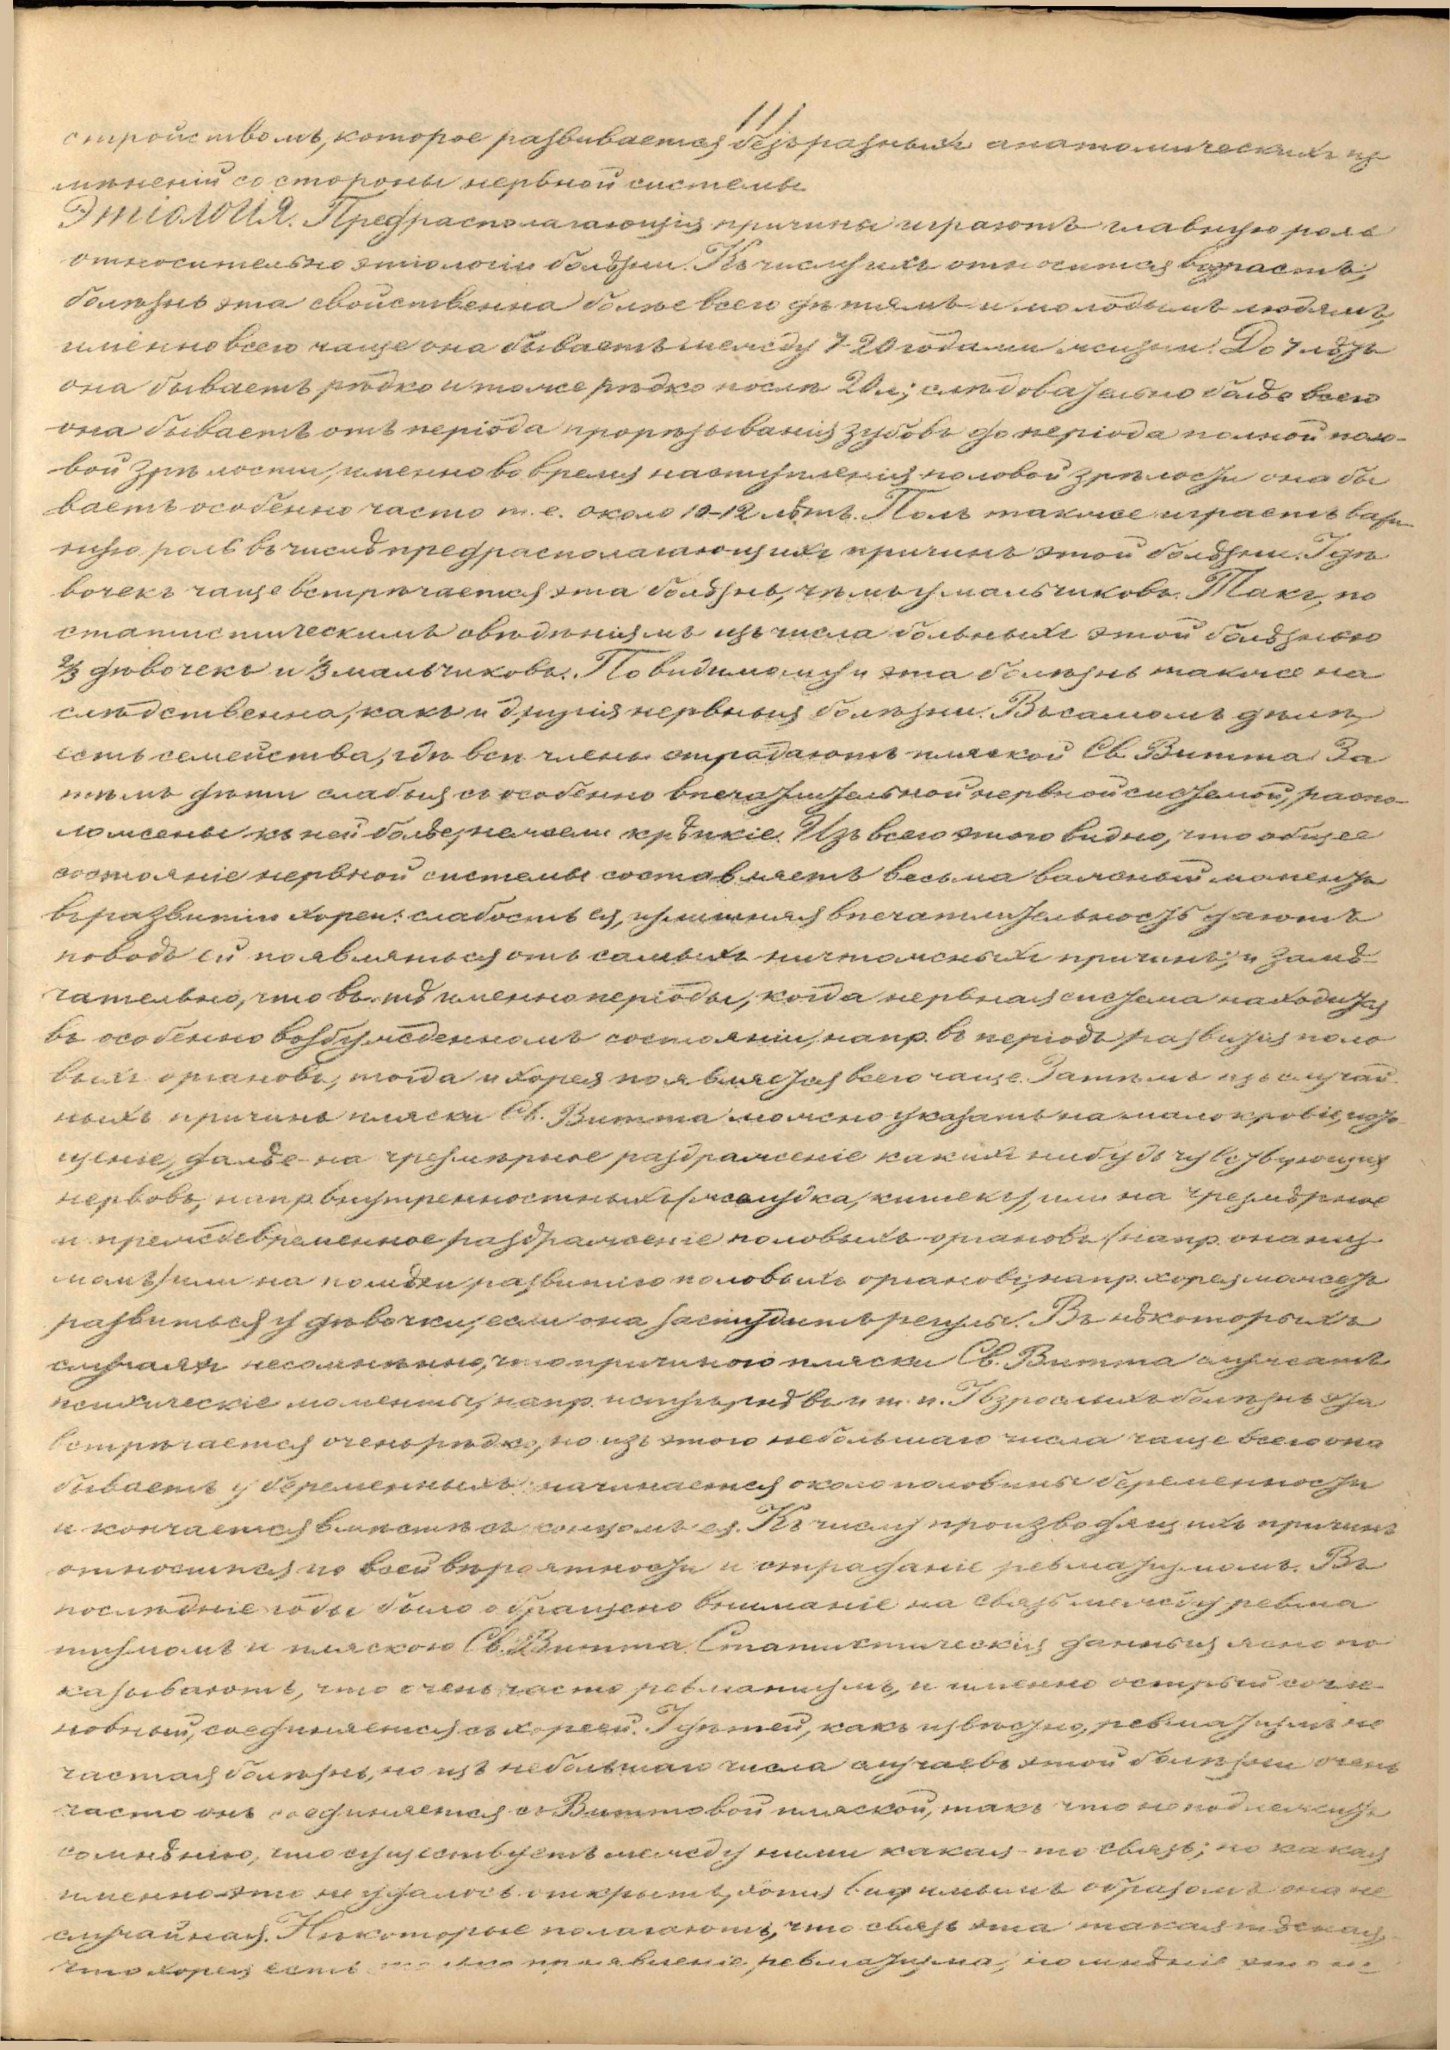 111
стройствомъ, которое развивается безъ разныхъ анатомическихъ из
мѣненій со стороны нервной системы
Этіологія. Предрасполагающія причины играютъ главную роль
относительно этіологіи болѣзни. Къ числу ихъ относится возрастъ,
болѣзнь эта свойственна болѣе всего дѣтямъ и молодымъ людямъ,
именно всего чаще она бываетъ между 7-20 годами жизни. До 7 лѣтъ
она бываетъ рѣдко и тоже рѣдко послѣ 20 л; слѣдовательно болѣе всего
она бываетъ отъ періода прорѣзыванія зубовъ до періода полной поло-
вой зрѣлости, именно во время наступленія половой зрѣлости она бы
ваетъ особенно часто т. е. около 10-12 лѣтъ. Полъ также играетъ важ-
ную роль въ числѣ предрасполагающихъ причинъ этой болѣзни. У дѣ
вочекъ чаще встрѣчается эта болѣзнь, чѣмъ у мальчиковъ. Такъ, по
статистическимъ свѣдѣніямъ изъ числа больныхъ этой болѣзнью
2/3 дѣвочекъ и 1/3 мальчиковъ. Повидимому и эта болѣзнь также на
слѣдственна, какъ и другія нервныя болѣзни. Въ самомъ дѣлѣ,
есть семейства, гдѣ всѣ члены страдаютъ пляской Св. Витта. За
тѣмъ дѣти слабыя съ особенно впечатлительной нервной системой, распо-
ложены къ ней болѣе нежели крѣпкіе. Изъ всего этого видно, что общее
состояніе нервной системы составляетъ весьма важный моментъ
въ развитіи хореи: слабость ея, излишняя впечатлительность даютъ
поводъ ей появляться отъ самыхъ ничтожныхъ причинъ; и замѣ-
чательно, что въ тѣ именно періоды, когда нервная система находится
въ особенно возбужденномъ состояніи, напр. въ періодъ развитія поло
выхъ органовъ, тогда и хорея появляется всего чаще. Затѣмъ изъ случай-
ныхъ причинъ пляски Св. Витта можно указать на малокровіе, исто-
щеніе, далѣе на чрезмѣрное раздраженіе какихъ нибудь чувствующихъ
нервовъ, напр внутренностныхъ (желудка, кишекъ), или на чрезмѣрное
и преждевременное раздраженіе половыхъ органовъ (напр. онаниз-
момъ) или на помѣхи развитію половыхъ органовъ, напр. хорея можетъ
развиться у дѣвочки, если она застудитъ регулы. Въ нѣкоторыхъ
случаяхъ несомнѣнно, что причиною пляски Св. Витта служатъ
психическіе моменты, напр. испугъ, гнѣвъ и т. п. У взрослыхъ болѣзнь эта
встрѣчается очень рѣдко, но изъ этого небольшаго числа чаще всего она
бываетъ у беременныхъ: начинается около половины беременности
и кончается вмѣстѣ съ концомъ ея. Къ числу производящихъ причинъ
относится по всей вѣроятности и страданіе ревматизмомъ. Въ
послѣдніе годы было обращено вниманіе на связь между ревма
тизмомъ и пляскою Св. Витта. Статистическія данныя ясно по
казываютъ, что очень часто ревматизмъ, и именно острый сочле-
новный, соединяется съ хореей. У дѣтей, какъ извѣстно, ревматизмъ не
частая болѣзнь, но изъ небольшаго числа случаевъ этой болѣзни очень
часто онъ соединяется съ Виттовой пляской, такъ что не подлежитъ
сомнѣнію, что существуетъ между ними какая-то связь; но какая
именно-это не удалось открыть, хотя видимымъ образомъ она не
случайная. Нѣкоторые полагаютъ, что связь эта такая тѣсная,
что хорея есть проявленіе ревматизма, но мнѣніе это не